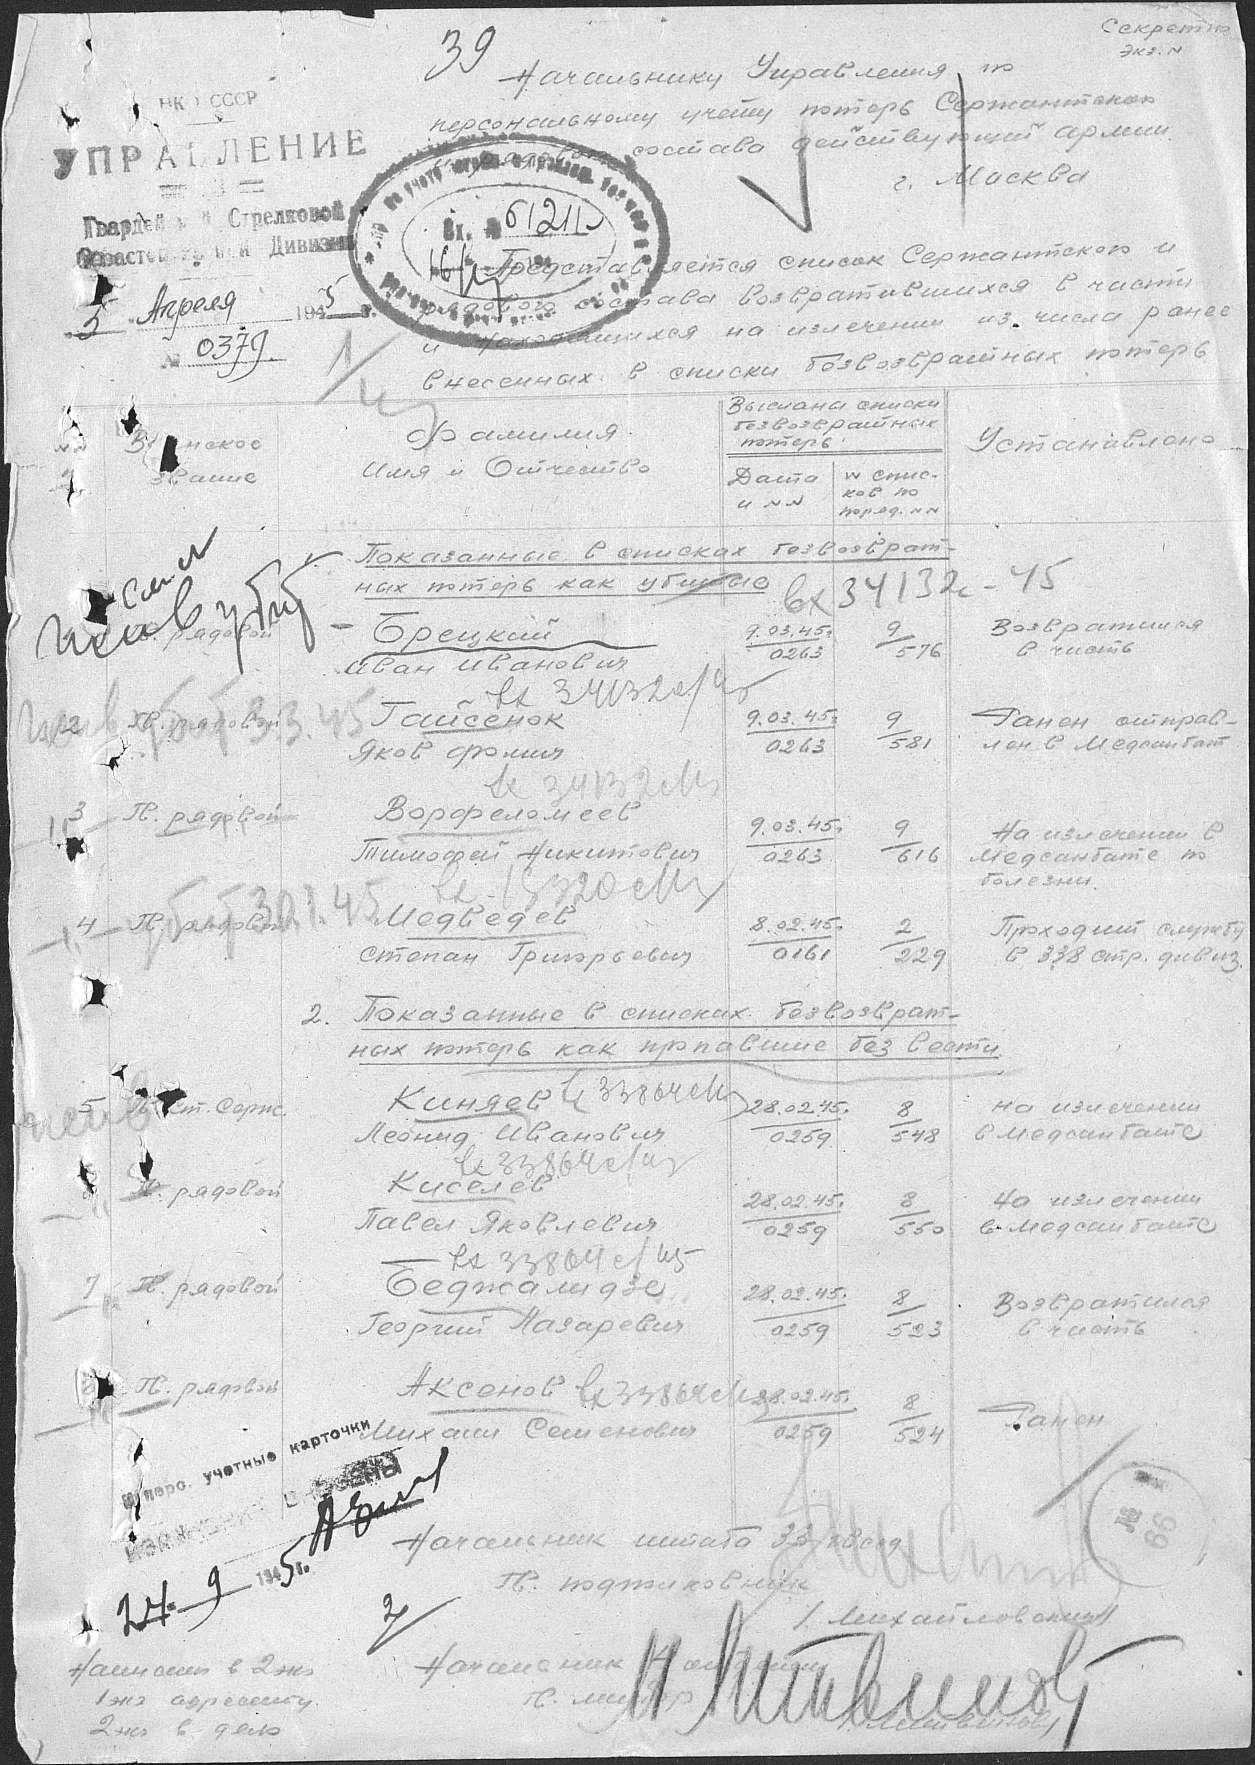 Секретно
Экз. №
39
Начальнику Управления по
персональному учету потерь Сержантского
состава действующей армии
г. Москва
НКО СССР
УПРАВЛЕНИЕ
33
Гвардейской Стрелковой
Севастопольской Дивизии
5 Апреля 1945 г.
№ 0379
Вх. № 61211
Представляется список Сержантского и
рядового состава возвратившихся в части
и находящихся на излечении из числа ранее
внесенных в списки безвозвратных потерь
№№
Воинское
звание
Фамилия
Имя и Отчество
Высланы списки
безвозвратных
потерь
Дата
и №№
№ спис-
ков по
поряд. №№
Установлено
Показанные в списках безвозврат-
ных потерь как убитые
вх 34132с-45
Гв. рядовой
Брецкий
Иван Иванович
9.03.45г.
0263
9
576
Возвратился
в часть
вх 34132с/45
2 Гв. рядовой
Гайсенок
Яков Фомич
9.03.45г.
0263
9
581
Ранен отправ-
лен в Медсанбат
убит 3.3.45
вх 34132с/45
3 Гв. рядовой
Ворфеломеев
Тимофей Никитович
9.03.45г.
0263
9
616
На излечении в
Медсанбате по
болезни.
4 Гв. рядовой
убит 30.1.45
Медведев
Степан Григорьевич
8.02.45г.
0161
2
229
Проходит службу
в 338 стр. дивиз.
2. Показанные в списках безвозврат-
ных потерь как пропавшие без вести
5 Гв. ст. Серж.
Киняев вх 33864с/45
Леонид Иванович
28.02.45г.
0259
8
548
на излечении
в Медсанбате
вх 33864с/45
Гв. рядовой
Киселев
Павел Яковлевич
28.02.45г.
0259
8
550
На излечении
в Медсанбате
вх 33864с/45
7 Гв. рядовой
Беджалидзе
Георгий Назаревич
28.02.45г.
0259
8
523
Возвратился
в часть
8 Гв. рядовой
Аксенов вх 33864с/45
Михаил Семенович
28.02.45г.
0259
8
524
Ранен
персо. учетные карточки
24.9 1945 г.
№ 66
Начальник штаба 33 гвсд
Гв. подполковник
/Михайловский/
Начальник 4 отделения
Гв. майор
/Литвинов/
Написан в 2 экз
1 экз адресату
2 экз в дело